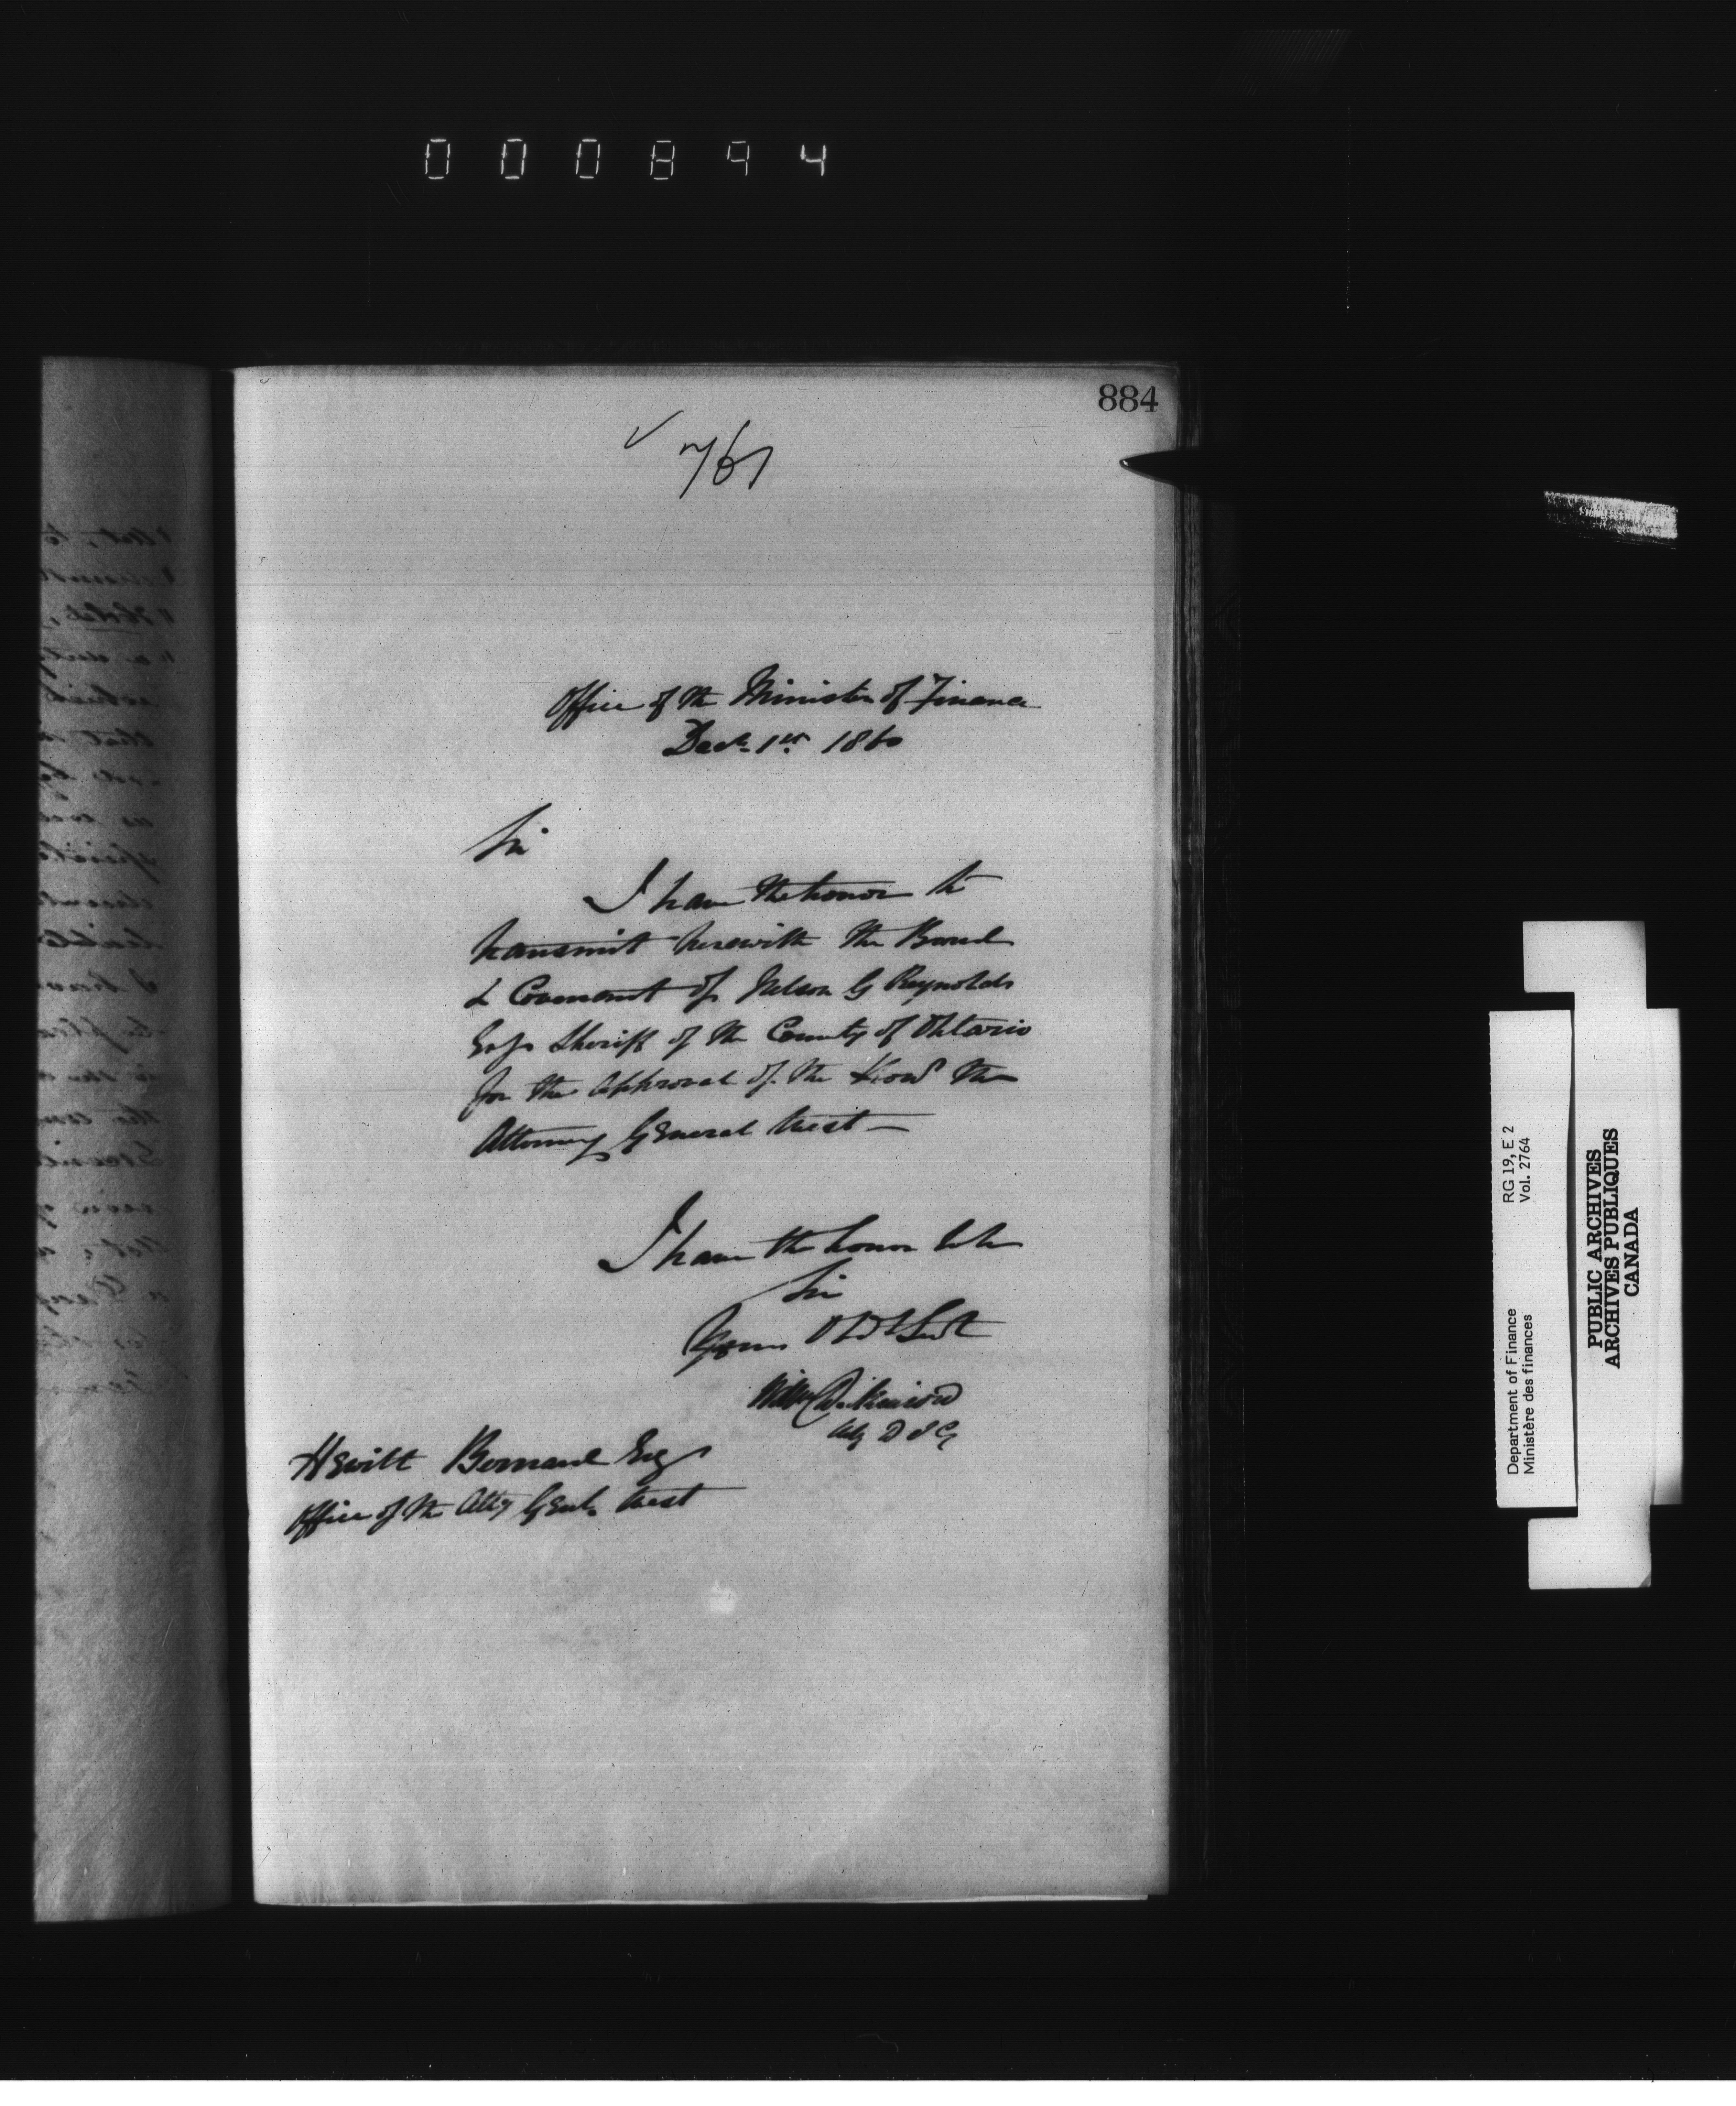 000894
884
✓ 761
Office of the Minister of Finance
Decr 1st 1860
Sir
I have the honor to
transmit herewith the Bond
& Covenant of Nelson G Reynolds
Esqr Sheriff of the County of Ontario
for the approval of the Honl the
Attorney General West —
I have the honor to be
Sir
Your Obdt Servt
Wm Dickinson
Actg D I G
Hewitt Bernard Esq
Office of the Atty Genl. West
RG 19, E 2
Vol. 2764
Department of Finance
Ministère des finances
PUBLIC ARCHIVES
ARCHIVES PUBLIQUES
CANADA